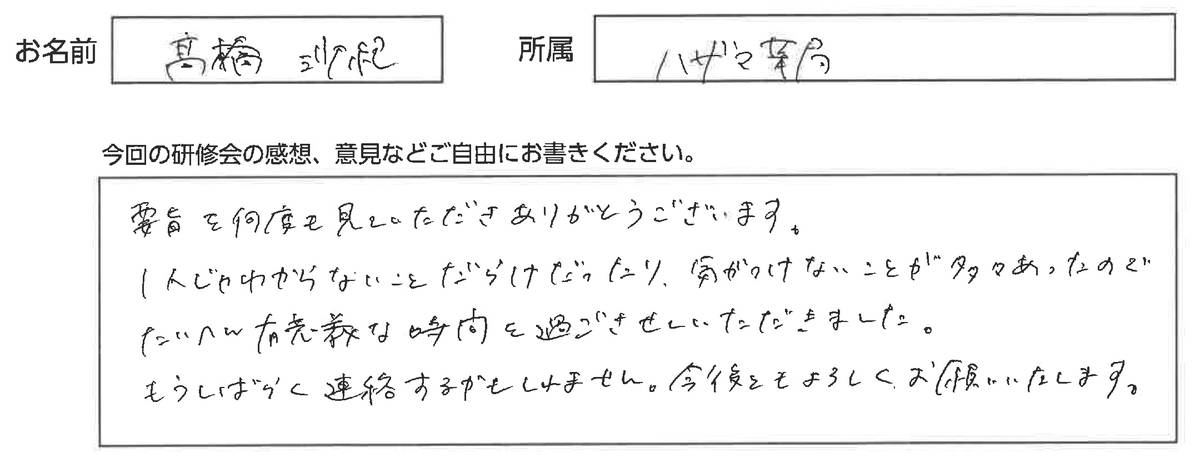 お名前 髙橋 所属 ハザマ薬局
今回の研修会の感想、意見などご自由にお書きください。
要旨を何度も見ていただきありがとうございます。
1人じゃわからないことだらけだったり、気がつけないことが多々あったので
たいへん有意義な時間を過ごさせていただきました。
もうしばらく連絡するかもしれません。今後ともよろしくお願いいたします。